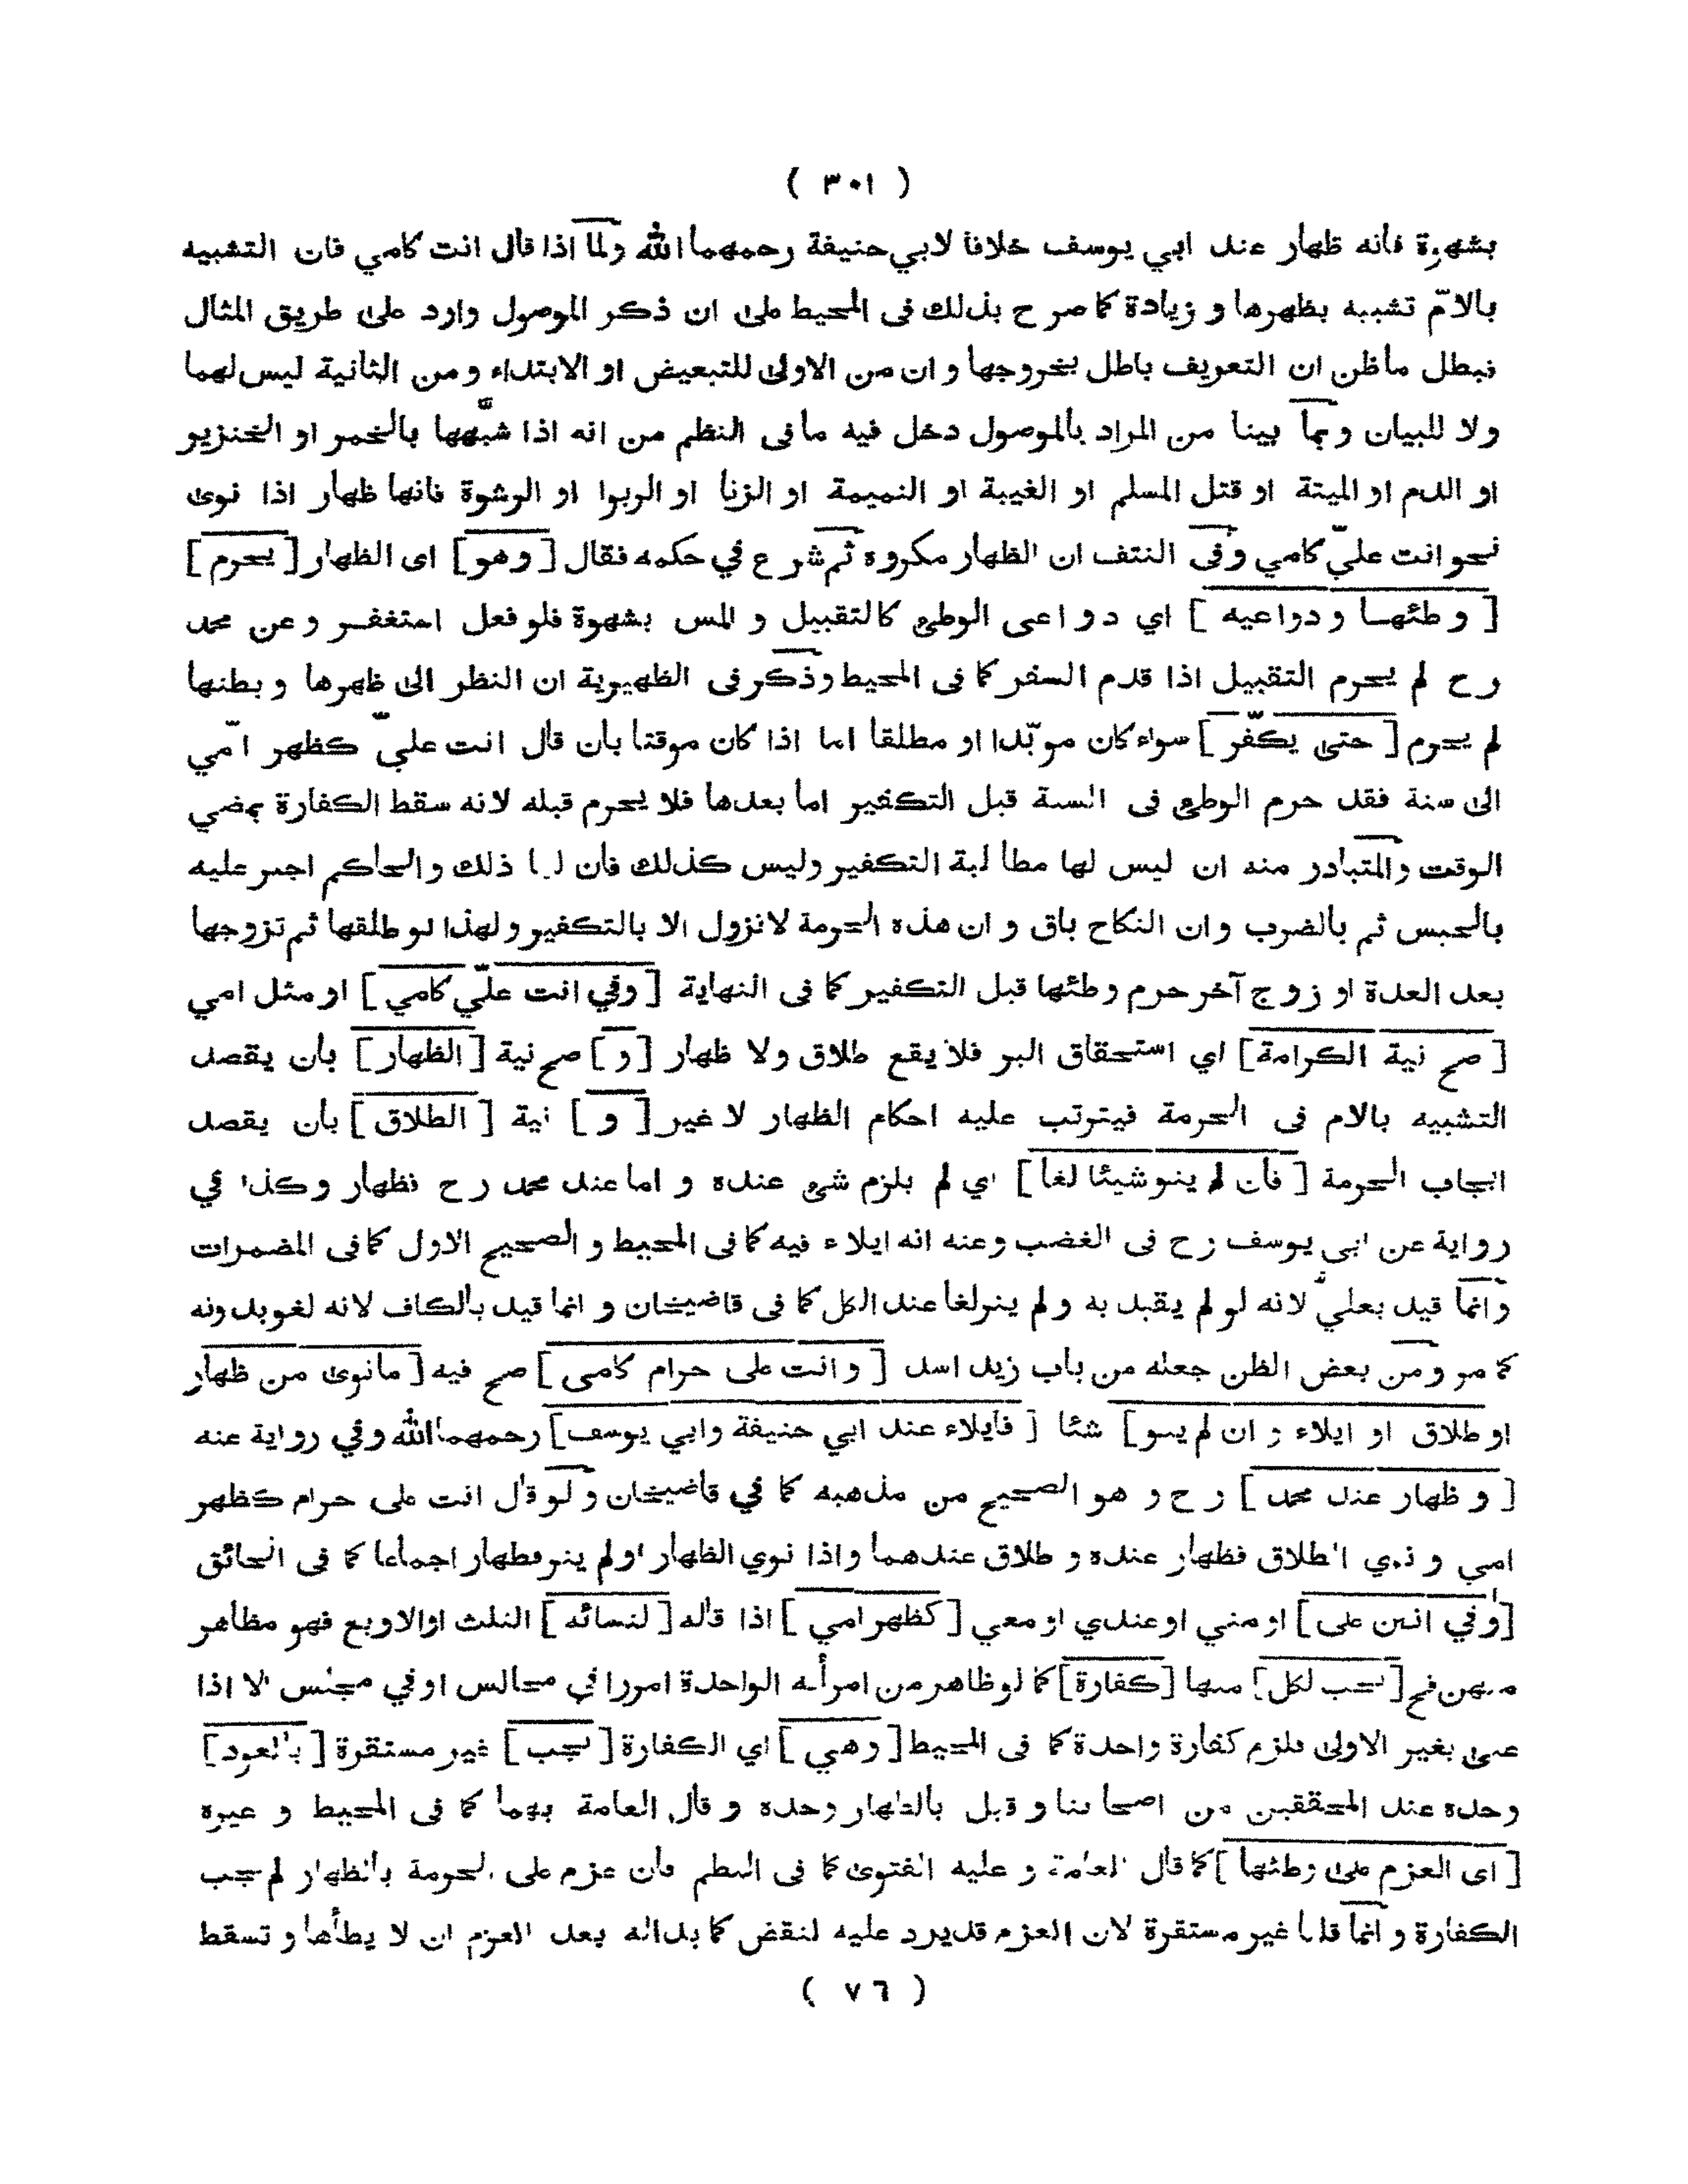 ( ٣٠١ )
بشهوة فانه ظهار عند ابي يوسف خلافا لابي حنيفة رحمهما الله ولما اذا قال انت كامي فان التشبيه
بالامّ تشبيه بظهرها و زيادة كما صرح بذلك فى المحيط على ان ذكر الموصول وارد على طريق المثال
فبطل ماظن ان التعريف باطل بخروجها و ان من الاولى للتبعيض او الابتداء و من الثانية ليس لهما
ولا للبيان و بما بينا من المراد بالموصول دخل فيه ما فى النظم من انه اذا شبّهها بالخمر او الخنزير
او الدم او الميتة او قتل المسلم او الغيبة او النميمة او الزنا او الربوا او الرشوة فانها ظهار اذا نوى
نحو انت عليّ كامي وفى النتف ان الظهار مكروه ثم شرع في حكمه فقال [ وهو ] اى الظهار [ يحرم ]
[ وطئهــا و دواعيه ] اي دواعى الوطئ كالتقبيل و المس بشهوة فلو فعل استغفــر و عن محمد
رح لم يحرم التقبيل اذا قدم السفر كما فى المحيط وذكر فى الظهيرية ان النظر الى ظهرها و بطنها
لم يحرم [ حتى يكفّر ] سواء كان موبّدا او مطلقا اما اذا كان موقتا بان قال انت عليّ كظهر امّي
الى سنة فقد حرم الوطئ فى السنة قبل التكفير اما بعدها فلا يحرم قبله لانه سقط الكفارة بمضي
الوقت والمتبادر منه ان ليس لها مطالبة التكفير وليس كذلك فان لها ذلك والحاكم اجبر عليه
بالحبس ثم بالضرب وان النكاح باق و ان هذه الحرمة لا تزول الا بالتكفير و لهذا لو طلقها ثم تزوجها
بعد العدة او زوج آخر حرم وطئها قبل التكفير كما فى النهاية [ وفي انت عليّ كامي ] او مثل امي
[ صح نية الكرامة ] اي استحقاق البر فلا يقع طلاق ولا ظهار [ و ] صح نية [ الظهار ] بان يقصد
التشبيه بالام فى الحرمة فيترتب عليه احكام الظهار لا غير [ و ] نية [ الطلاق ] بان يقصد
ايجاب الحرمة [ فان لم ينو شيئا لغا ] اي لم يلزم شئ عنده و اما عند محمد رح فظهار و كذا في
رواية عن ابى يوسف رح فى الغضب وعنه انه ايلاء فيه كما فى المحيط و الصحيح الاول كما فى المضمرات
وانما قيد بعليّ لانه لو لم يقيد به و لم ينو لغا عند الكل كما فى قاضيخان و انما قيد بالكاف لانه لغو بدونه
كما مر و من بعض الظن جعله من باب زيد اسد [ و انت على حرام كامى ] صح فيه [ مانوى من ظهار
او طلاق او ايلاء و ان لم ينو ] شئا [ فايلاء عند ابي حنيفة وابي يوسف ] رحمهما الله وفي رواية عنه
[ و ظهار عند محمد ] رح و هو الصحيح من مذهبه كما في قاضيخان و لو قال انت على حرام كظهر
امي و نوي الطلاق فظهار عنده و طلاق عندهما واذا نوي الظهار او لم ينو فظهار اجماعا كما فى الحائق
[ وفي انتن على ] او مني او عندي او معي [ كظهر امي ] اذا قاله [ لنسائه ] الثلث او الاربع فهو مظاهر
منهن فح [ تجب لكل ] منها [ كفارة ] كما لو ظاهر من امرأته الواحدة امورا في مجالس او في مجلس الا اذا
عنى بغير الاولى فلزم كفارة واحدة كما فى المحيط [ وهي ] اي الكفارة [ تجب ] غير مستقرة [ بالعود ]
وحده عند المحققين من اصحابنا و قيل بالظهار وحده و قال العامة بهما كما فى المحيط و غيره
[ اى العزم على وطئها ] كما قال العامة و عليه الفتوى كما فى النظم فان عزم على الحرمة بالظهار لم تجب
الكفارة و انما قلنا غير مستقرة لان العزم قد يرد عليه لنقض كما بداله بعد العزم ان لا يطأها و تسقط
( ٧٦ )